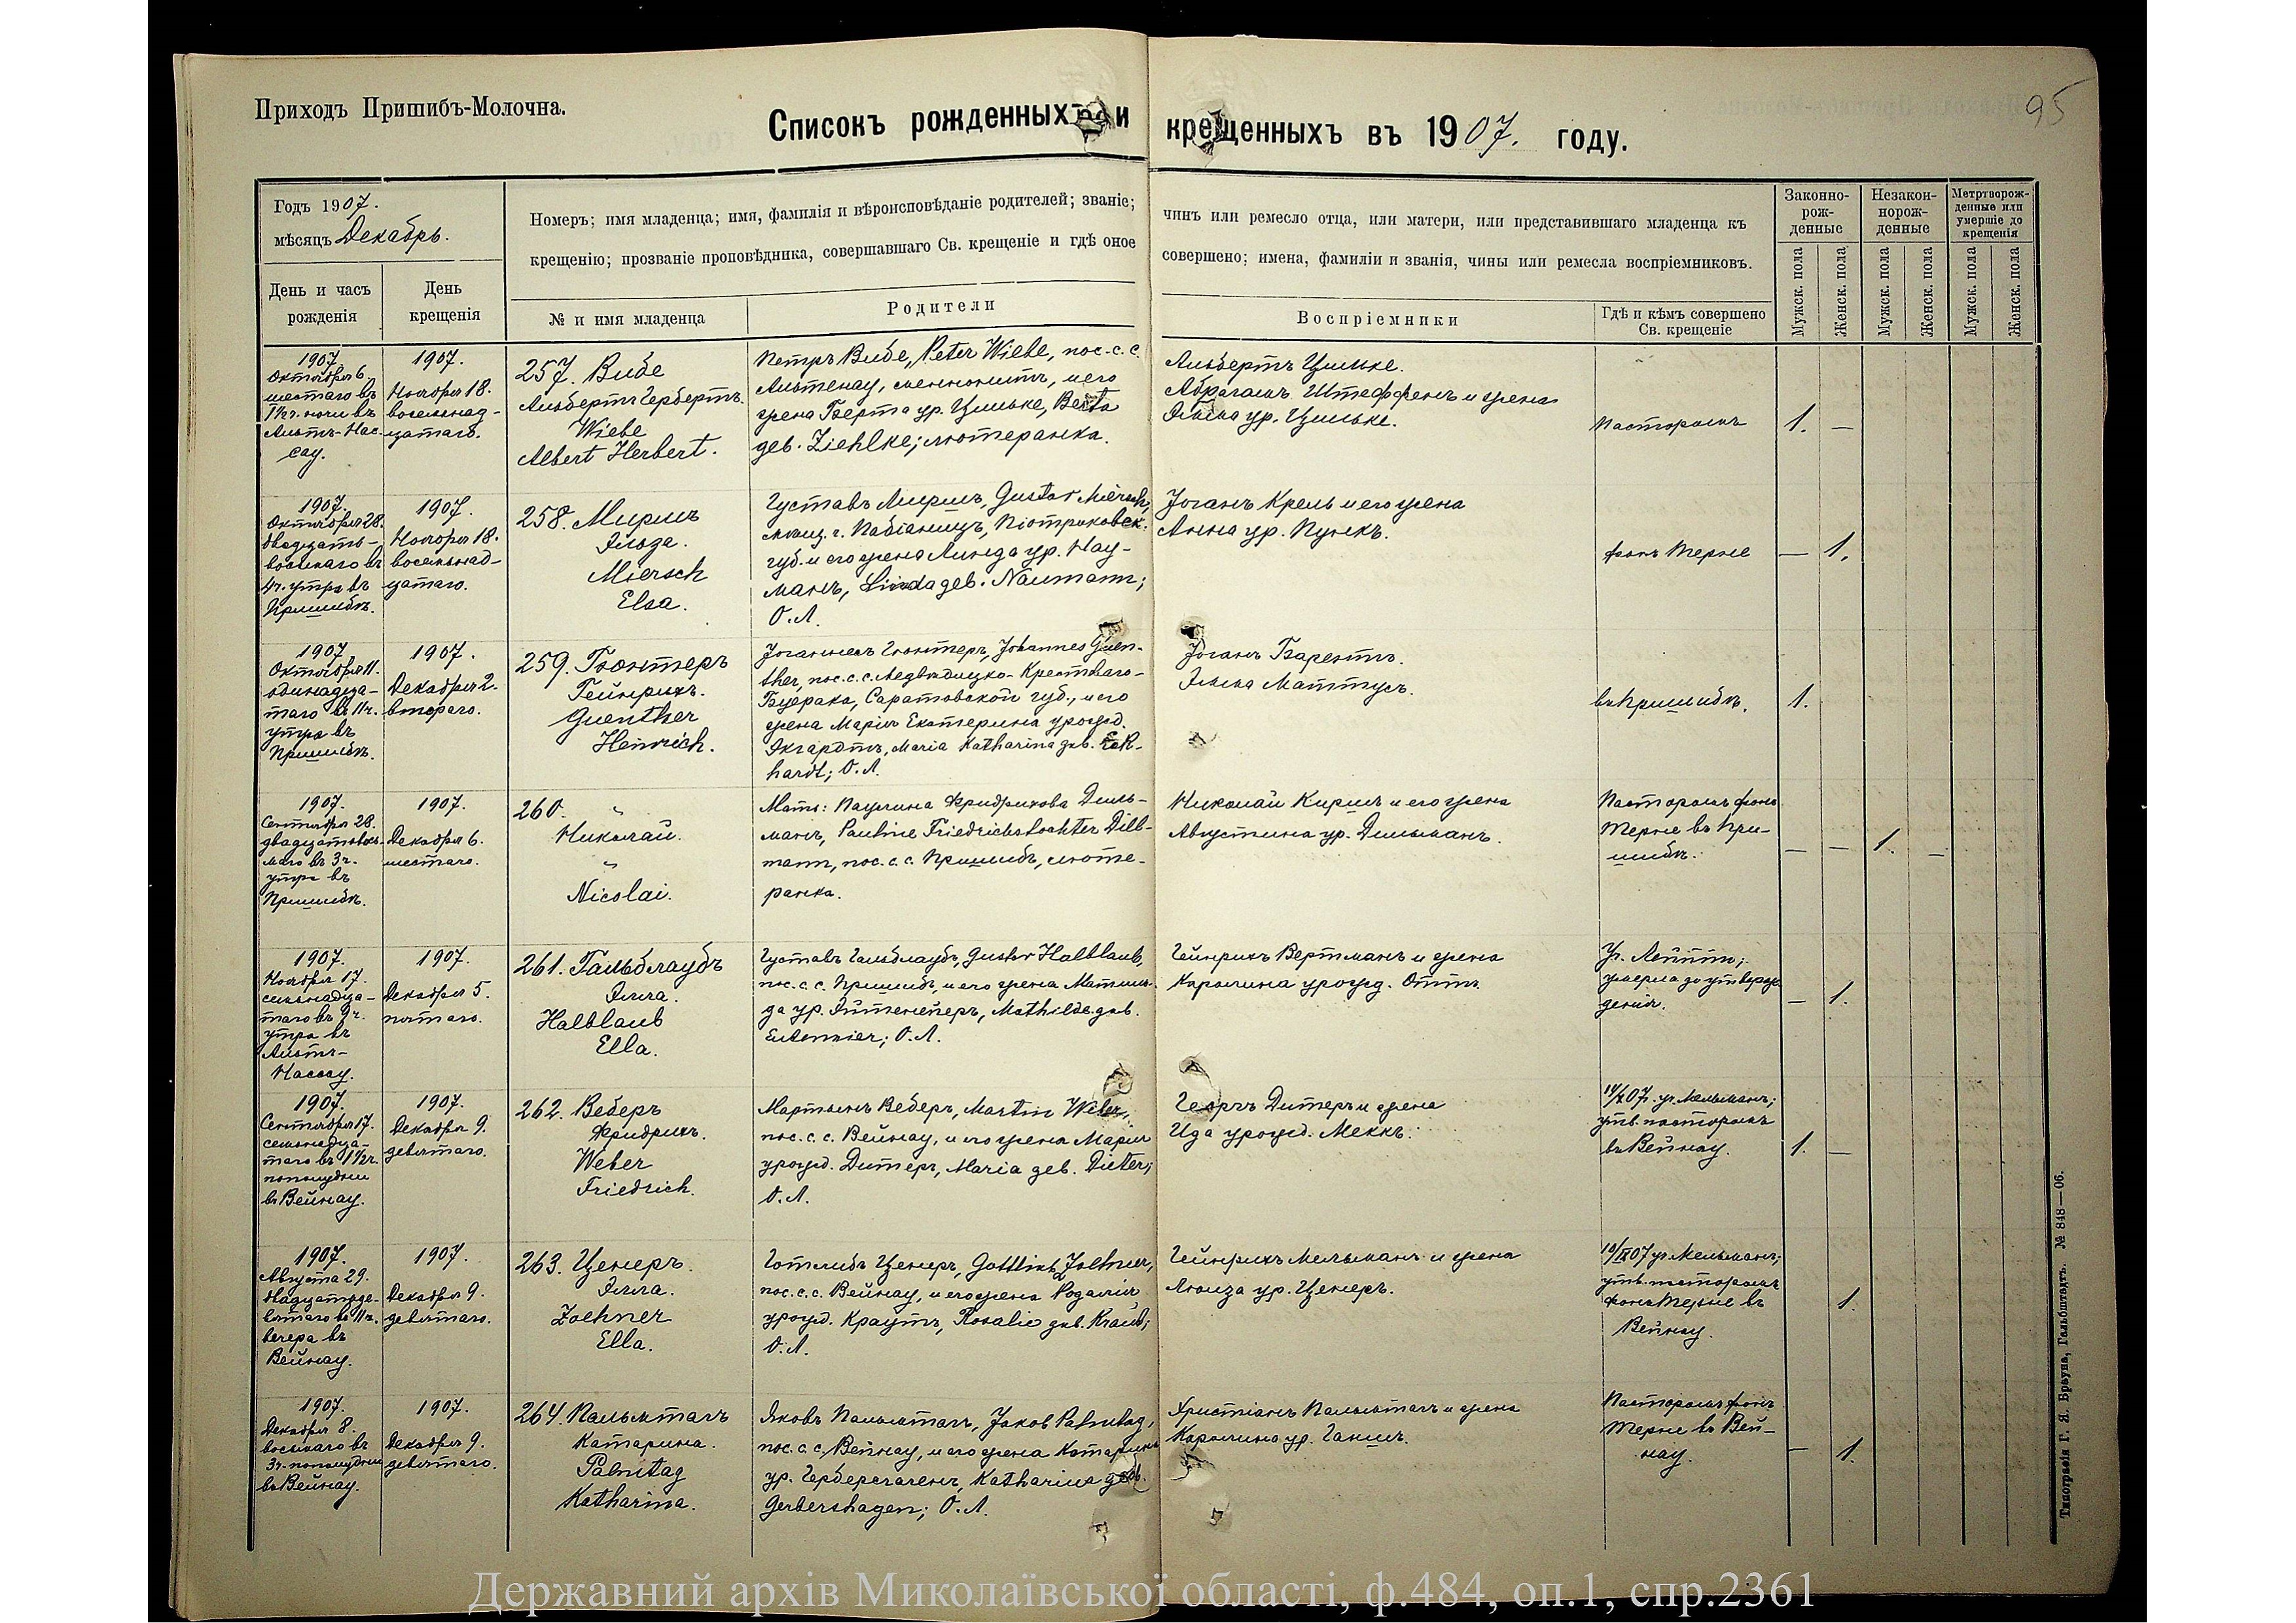 Приходъ Пришибъ-Молочна.
95
Списокъ рожденныхъ и крещенныхъ въ 1907. году.
Годъ 1907.
мѣсяцъ Декабрь.
День и часъ
рожденія
День
крещенія
Номеръ; имя младенца; имя, фамилія и вѣроисповѣданіе родителей; званіе; чинъ или ремесло отца, или матери, или представившаго младенца къ
крещенію; прозваніе проповѣдника, совершавшаго Св. крещеніе и гдѣ оное совершено; имена, фамиліи и званія, чины или ремесла воспріемниковъ.
№ и имя младенца
Родители
Воспріемники
Гдѣ и кѣмъ совершено
Св. крещеніе
Законно-
рож-
денные
Незакон-
норож-
денные
Метртворож-
денные или
умершіе до
крещенія
Мужск. пола
Женск. пола
Мужск. пола
Женск. пола
Мужск. пола
Женск. пола
1907.
Октября 6.
шестаго въ
1½ч. ночи въ
Альтъ-Нас-
сау.
1907.
Ноября 18.
восемьнад-
цатаго.
257. Вибе
Альбертъ Гербертъ.
Wiebe
Albert Herbert.
Петръ Вибе, Peter Wiebe, пос. с. с.
Альтенау, меннонитъ, и его
жена Берта ур. Цильке, Berta
geb. Ziehlke; лютеранка.
Альбертъ Цильке.
Абрагамъ Штеффенъ и жена
ур. Цильке.
Пасторомъ
1. —
1907.
Октября 28.
двадцать-
восьмаго въ
4ч. утра въ
Пришибѣ.
1907.
Ноября 18.
восемьнад-
цатаго.
258. Миршъ
Эльза.
Miersch
Elsa.
Густавъ Миршъ, Gustav Miersch,
мѣщ. г. Пабіаницъ, Піотриковск.
губ. и его жена Линда ур. Нау-
манъ, Linda geb. Naumann;
О. Л.
Іоганъ Крель и его жена
Анна ур. Пункъ.
фонъ Терне
— 1.
1907.
Октября 11.
одинадца-
таго въ 11ч.
утра въ
Пришибѣ.
1907.
Декабря 2.
втораго.
259. Гюнтеръ
Гейнрихъ.
Guenther
Heinrich.
Іоганнесъ Гюнтеръ, Johannes Guen-
ther, пос. с. с. Медвѣдицко-Крестоваго-
Буерака, Саратовской губ., и его
жена Марія Екатерина урожд.
Экгардтъ, Maria Katharina geb. Eck-
hardt; О. Л.
Іоганъ Барентъ.
Эмма Маттусъ.
въ Пришибѣ.
1.
1907.
Сентября 28.
двадцатьвось-
маго въ 3ч.
утра въ
Пришибѣ.
1907.
Декабря 6.
шестаго.
260. "
Николай.
"
Nicolai.
Мать: Паулина Фридрихова Диль-
манъ, Pauline Friedrichstochter Dill-
mann, пос. с. с. Пришибъ, люте-
ранка.
Николай Киршъ и его жена
Августина ур. Дильманъ.
Пасторомъ фонъ
Терне въ При-
шибѣ.
— — 1. —
1907.
Ноября 17.
семьнадца-
таго въ 9ч.
утра въ
Альтъ-
Нассау.
1907.
Декабря 5.
пятаго.
261. Гальблаубъ
Элла.
Halblaub
Ella.
Густавъ Гальблаубъ, Gustav Halblaub,
пос. с. с. Пришибъ, и его жена Матиль-
да ур. Эйтенейеръ, Mathilde geb.
Euteneier; О. Л.
Гейнрихъ Вертманъ и жена
Каролина урожд. Оттъ.
Уч. Леппъ;
умерла до утверж-
денія.
— 1.
1907.
Сентября 17.
семьнадца-
таго въ 1½ч.
пополудни
въ Вейнау.
1907.
Декабря 9.
девятаго.
262. Веберъ
Фридрихъ.
Weber
Friedrich.
Мартынъ Веберъ, Martin Weber,
пос. с. с. Вейнау, и его жена Марія
урожд. Дитеръ, Maria geb. Dieter;
О. Л.
Георгъ Дитеръ и жена
Ида урожд. Меккъ.
07. уч. Мельманъ;
утв. пасторомъ
въ Вейнау.
1. —
1907.
Августа 29.
двадцатьде-
вятаго въ 11ч.
вечера въ
Вейнау.
1907.
Декабря 9.
девятаго.
263. Ценеръ.
Элла.
Zoehner
Ella.
Готлибъ Ценеръ, Gottlieb Zoehner,
пос. с. с. Вейнау, и его жена Розалія
урожд. Краутъ, Rosalie geb. Kraut;
О. Л.
Гейнрихъ Мельманъ и жена
Луиза ур. Ценеръ.
10/IX 07 уч. Мельманъ;
утв. пасторомъ
фонъ Терне въ
Вейнау.
1.
1907.
Декабря 8.
восьмаго въ
3ч. пополудни
въ Вейнау.
1907.
Декабря 9.
девятаго.
264. Пальмтагъ
Катарина.
Palmtag
Katharina.
Яковъ Пальмтагъ, Jakob Palmtag,
пос. с. с. Вейнау, и его жена Катарина
ур. Герберсгагенъ, Katharina geb.
Gerbershagen; О. Л.
Христіанъ Пальмтагъ и жена
Каролина ур. Ганшъ.
Пасторомъ фонъ
Терне въ Вей-
нау.
— 1.
Типографія Г. Я. Брауна, Гальбштадтъ. № 848—06.
Державний архів Миколаївської області, ф.484, оп.1, спр.2361